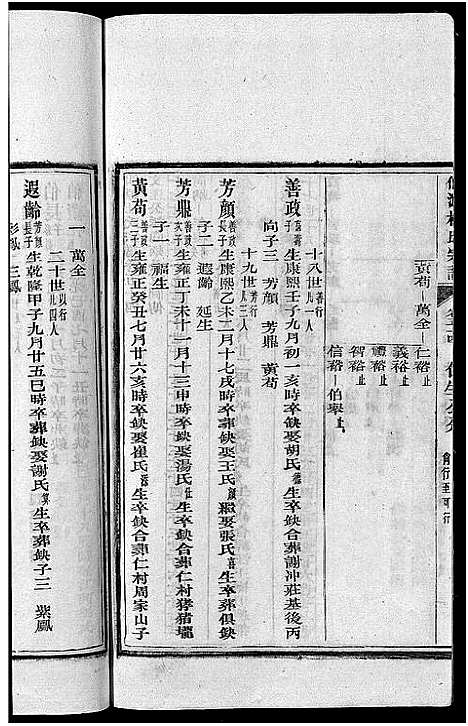 黃荀—萬全—仁裕止
義裕止
禮裕止
智裕止
信裕—伯舉止
十八世善行八一人
善政 生康熙壬子九月初一亥時卒缺娶胡氏 生卒葬缺合葬謝沖莊基後丙
向子三 芳顏 芳鼎 黃荀
十九世 行八三人
芳顏善政長子生康熙乙未二月十七戌時卒缺娶王氏 繼娶張氏 生卒葬俱缺
子二 遐齡 延生
芳鼎善政次子生雍正丁未十一月十三申時卒缺娶湯氏 生卒缺合葬仁村豬豬壠
子一 福生
黃荀善政三子生雍正癸丑七月廿六亥時卒缺娶崔氏 生卒缺合葬仁村周家山子
一 萬全
二十世 行八四人
遐齡芳顏長子生乾隆甲子九月廿五巳時卒葬缺娶謝氏 生卒葬缺子三 紫鳳
彩鳳 三鳳